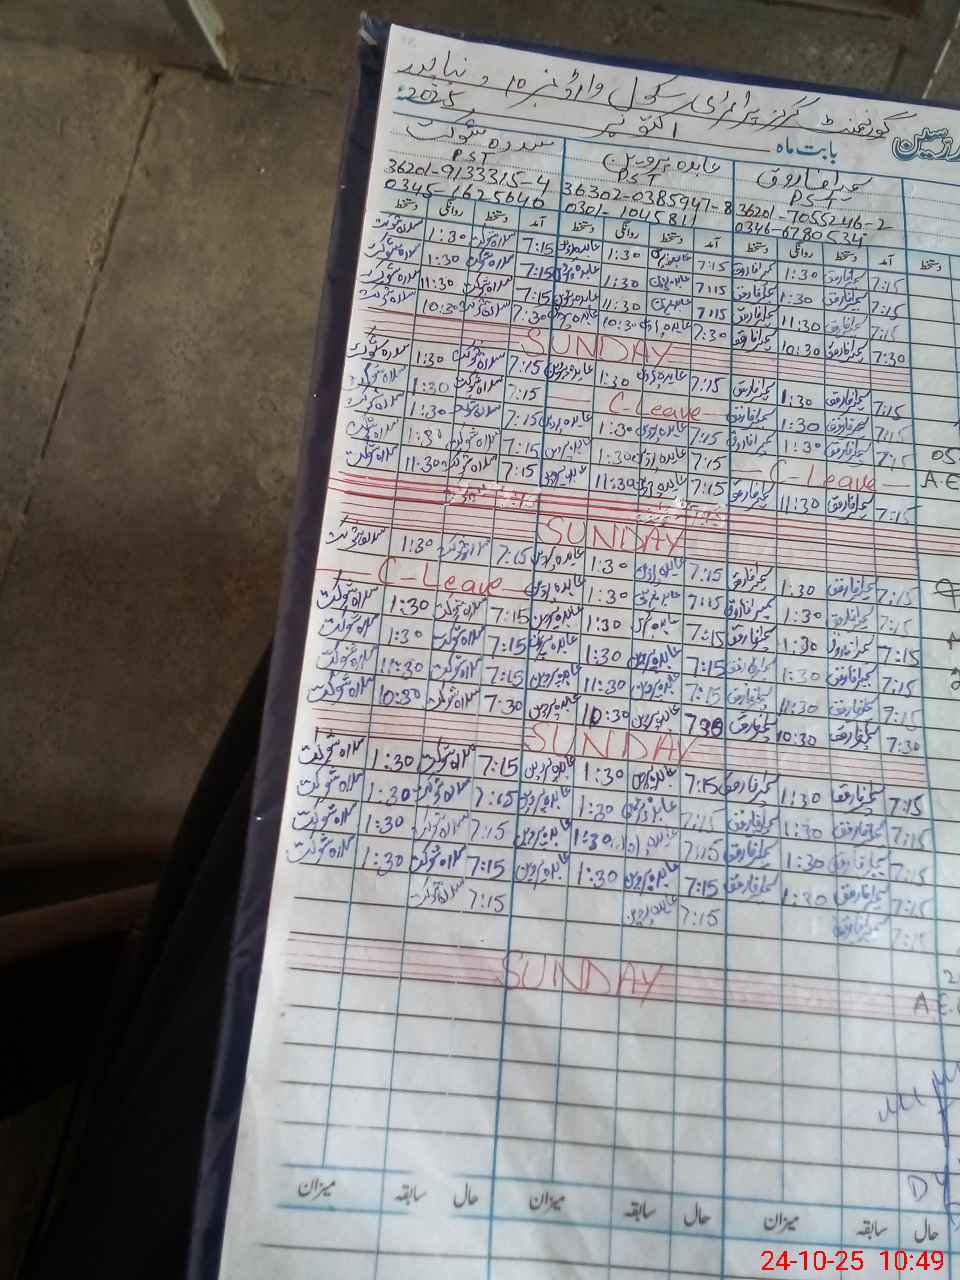 گورنمنٹ گرلز پرائمری سکول وارڈ نمبر ۱۰ دنیاپور
بابت ماہ اکتوبر 2025
سدرہ شوکت عابدہ پروین سمیرا فاروق
PST PST PST
36201-9133315-4 36302-0385947-8 36201-7055246-2
0345-1625640 0301-1045811 0346-6780534
آمد دستخط روانگی دستخط آمد دستخط روانگی دستخط آمد دستخط روانگی دستخط دستخط
7:15 سمیرا فاروق 1:30 سمیرا فاروق 7:15 عابدہ پروین 1:30 عابدہ پروین 7:15 سدرہ شوکت 1:30 سدرہ شوکت
7:15 سمیرا فاروق 1:30 سمیرا فاروق 7:15 عابدہ پروین 1:30 عابدہ پروین 7:15 سدرہ شوکت 1:30 سدرہ شوکت
7:15 سمیرا فاروق 11:30 سمیرا فاروق 7:15 عابدہ پروین 11:30 عابدہ پروین 7:15 سدرہ شوکت 11:30 سدرہ شوکت
7:30 سمیرا فاروق 10:30 سمیرا فاروق 7:30 عابدہ پروین 10:30 عابدہ پروین 7:30 سدرہ شوکت 10:30 سدرہ شوکت
SUNDAY
7:15 سمیرا فاروق 1:30 سمیرا فاروق 7:15 عابدہ پروین 1:30 عابدہ پروین 7:15 سدرہ شوکت 1:30 سدرہ شوکت
7:15 سمیرا فاروق 1:30 سمیرا فاروق C-Leave 7:15 سدرہ شوکت 1:30 سدرہ شوکت
7:15 سمیرا فاروق 1:30 سمیرا فاروق 7:15 عابدہ پروین 1:30 عابدہ پروین 7:15 سدرہ شوکت 1:30 سدرہ شوکت
C-Leave 7:15 عابدہ پروین 1:30 عابدہ پروین 7:15 سدرہ شوکت 1:30 سدرہ شوکت
7:15 سمیرا فاروق 11:30 سمیرا فاروق 7:15 عابدہ پروین 11:30 عابدہ پروین 7:15 سدرہ شوکت 11:30 سدرہ شوکت
SUNDAY
7:15 سمیرا فاروق 1:30 سمیرا فاروق 7:15 عابدہ پروین 1:30 عابدہ پروین 7:15 سدرہ شوکت 1:30 سدرہ شوکت
7:15 سمیرا فاروق 1:30 سمیرا فاروق 7:15 عابدہ پروین 1:30 عابدہ پروین C-Leave
7:15 سمیرا فاروق 1:30 سمیرا فاروق 7:15 عابدہ پروین 1:30 عابدہ پروین 7:15 سدرہ شوکت 1:30 سدرہ شوکت
7:15 سمیرا فاروق 1:30 سمیرا فاروق 7:15 عابدہ پروین 1:30 عابدہ پروین 7:15 سدرہ شوکت 1:30 سدرہ شوکت
7:15 سمیرا فاروق 11:30 سمیرا فاروق 7:15 عابدہ پروین 11:30 عابدہ پروین 7:15 سدرہ شوکت 11:30 سدرہ شوکت
7:30 سمیرا فاروق 10:30 سمیرا فاروق 730 عابدہ پروین 10:30 عابدہ پروین 7:30 سدرہ شوکت 10:30 سدرہ شوکت
SUNDAY
7:15 سمیرا فاروق 1:30 سمیرا فاروق 7:15 عابدہ پروین 1:30 عابدہ پروین 7:15 سدرہ شوکت 1:30 سدرہ شوکت
7:15 سمیرا فاروق 1:30 سمیرا فاروق 7:15 عابدہ پروین 1:30 عابدہ پروین 7:15 سدرہ شوکت 1:30 سدرہ شوکت
7:15 سمیرا فاروق 1:30 سمیرا فاروق 7:15 عابدہ پروین 1:30 عابدہ پروین 7:15 سدرہ شوکت 1:30 سدرہ شوکت
7:15 سمیرا فاروق 1:30 سمیرا فاروق 7:15 عابدہ پروین 1:30 عابدہ پروین 7:15 سدرہ شوکت 1:30 سدرہ شوکت
7:15 سمیرا فاروق 7:15 عابدہ پروین 7:15 سدرہ شوکت
SUNDAY
حال سابقہ میزان حال سابقہ میزان حال سابقہ میزان
24-10-25 10:49